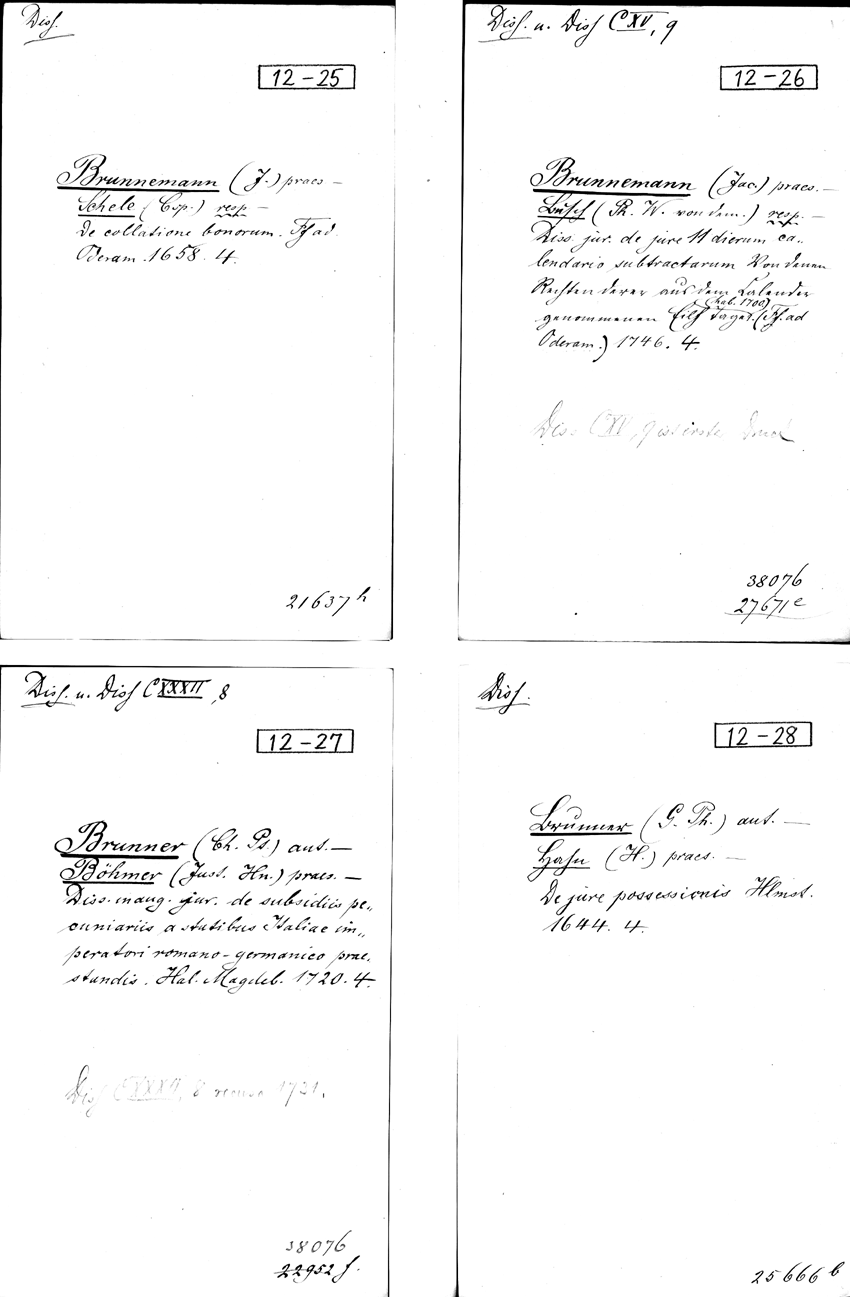 Diss.
12-25
Brunnemann (J.) praes –
Schele (Csp.) resp –
De collatione bonorum. Ff ad
Oderam. 1658. 4.
21637 h
Diss. u. Diss CXV, 9
12-26
Brunnemann (Jac.) praes. –
Busch (Th. W. von dem.) resp. –
Diss. jur. de jure 11 dierum ca„
lendario subtractarum Von denen
Rechten derer aus dem Calender
(hab. 1700)
genommenen Eilf Tage. (Ff. ad
Oderam.) 1746. 4.
Diss CXV, 9 ist irste Druck
38076
27671 e
Diss. u. Diss CXXXII, 8
12-27
Brunner (Ch. Ps.) aut. –
Böhmer (Just. Hn.) praes. –
Diss. inaug. jur. de subsidiis pe„
cuniariis a statibus Italiae im„
peratori romano-germanico prae„
standis. Hal. Magdeb. 1720. 4.
Diss CXXXII, 8 recusa 1731.
38076
22952 f.
Diss.
12-28
Brunner (G. Th.) aut. –
Hahn (H.) praes. –
De jure possessionis Hlmst.
1644. 4.
25666 b